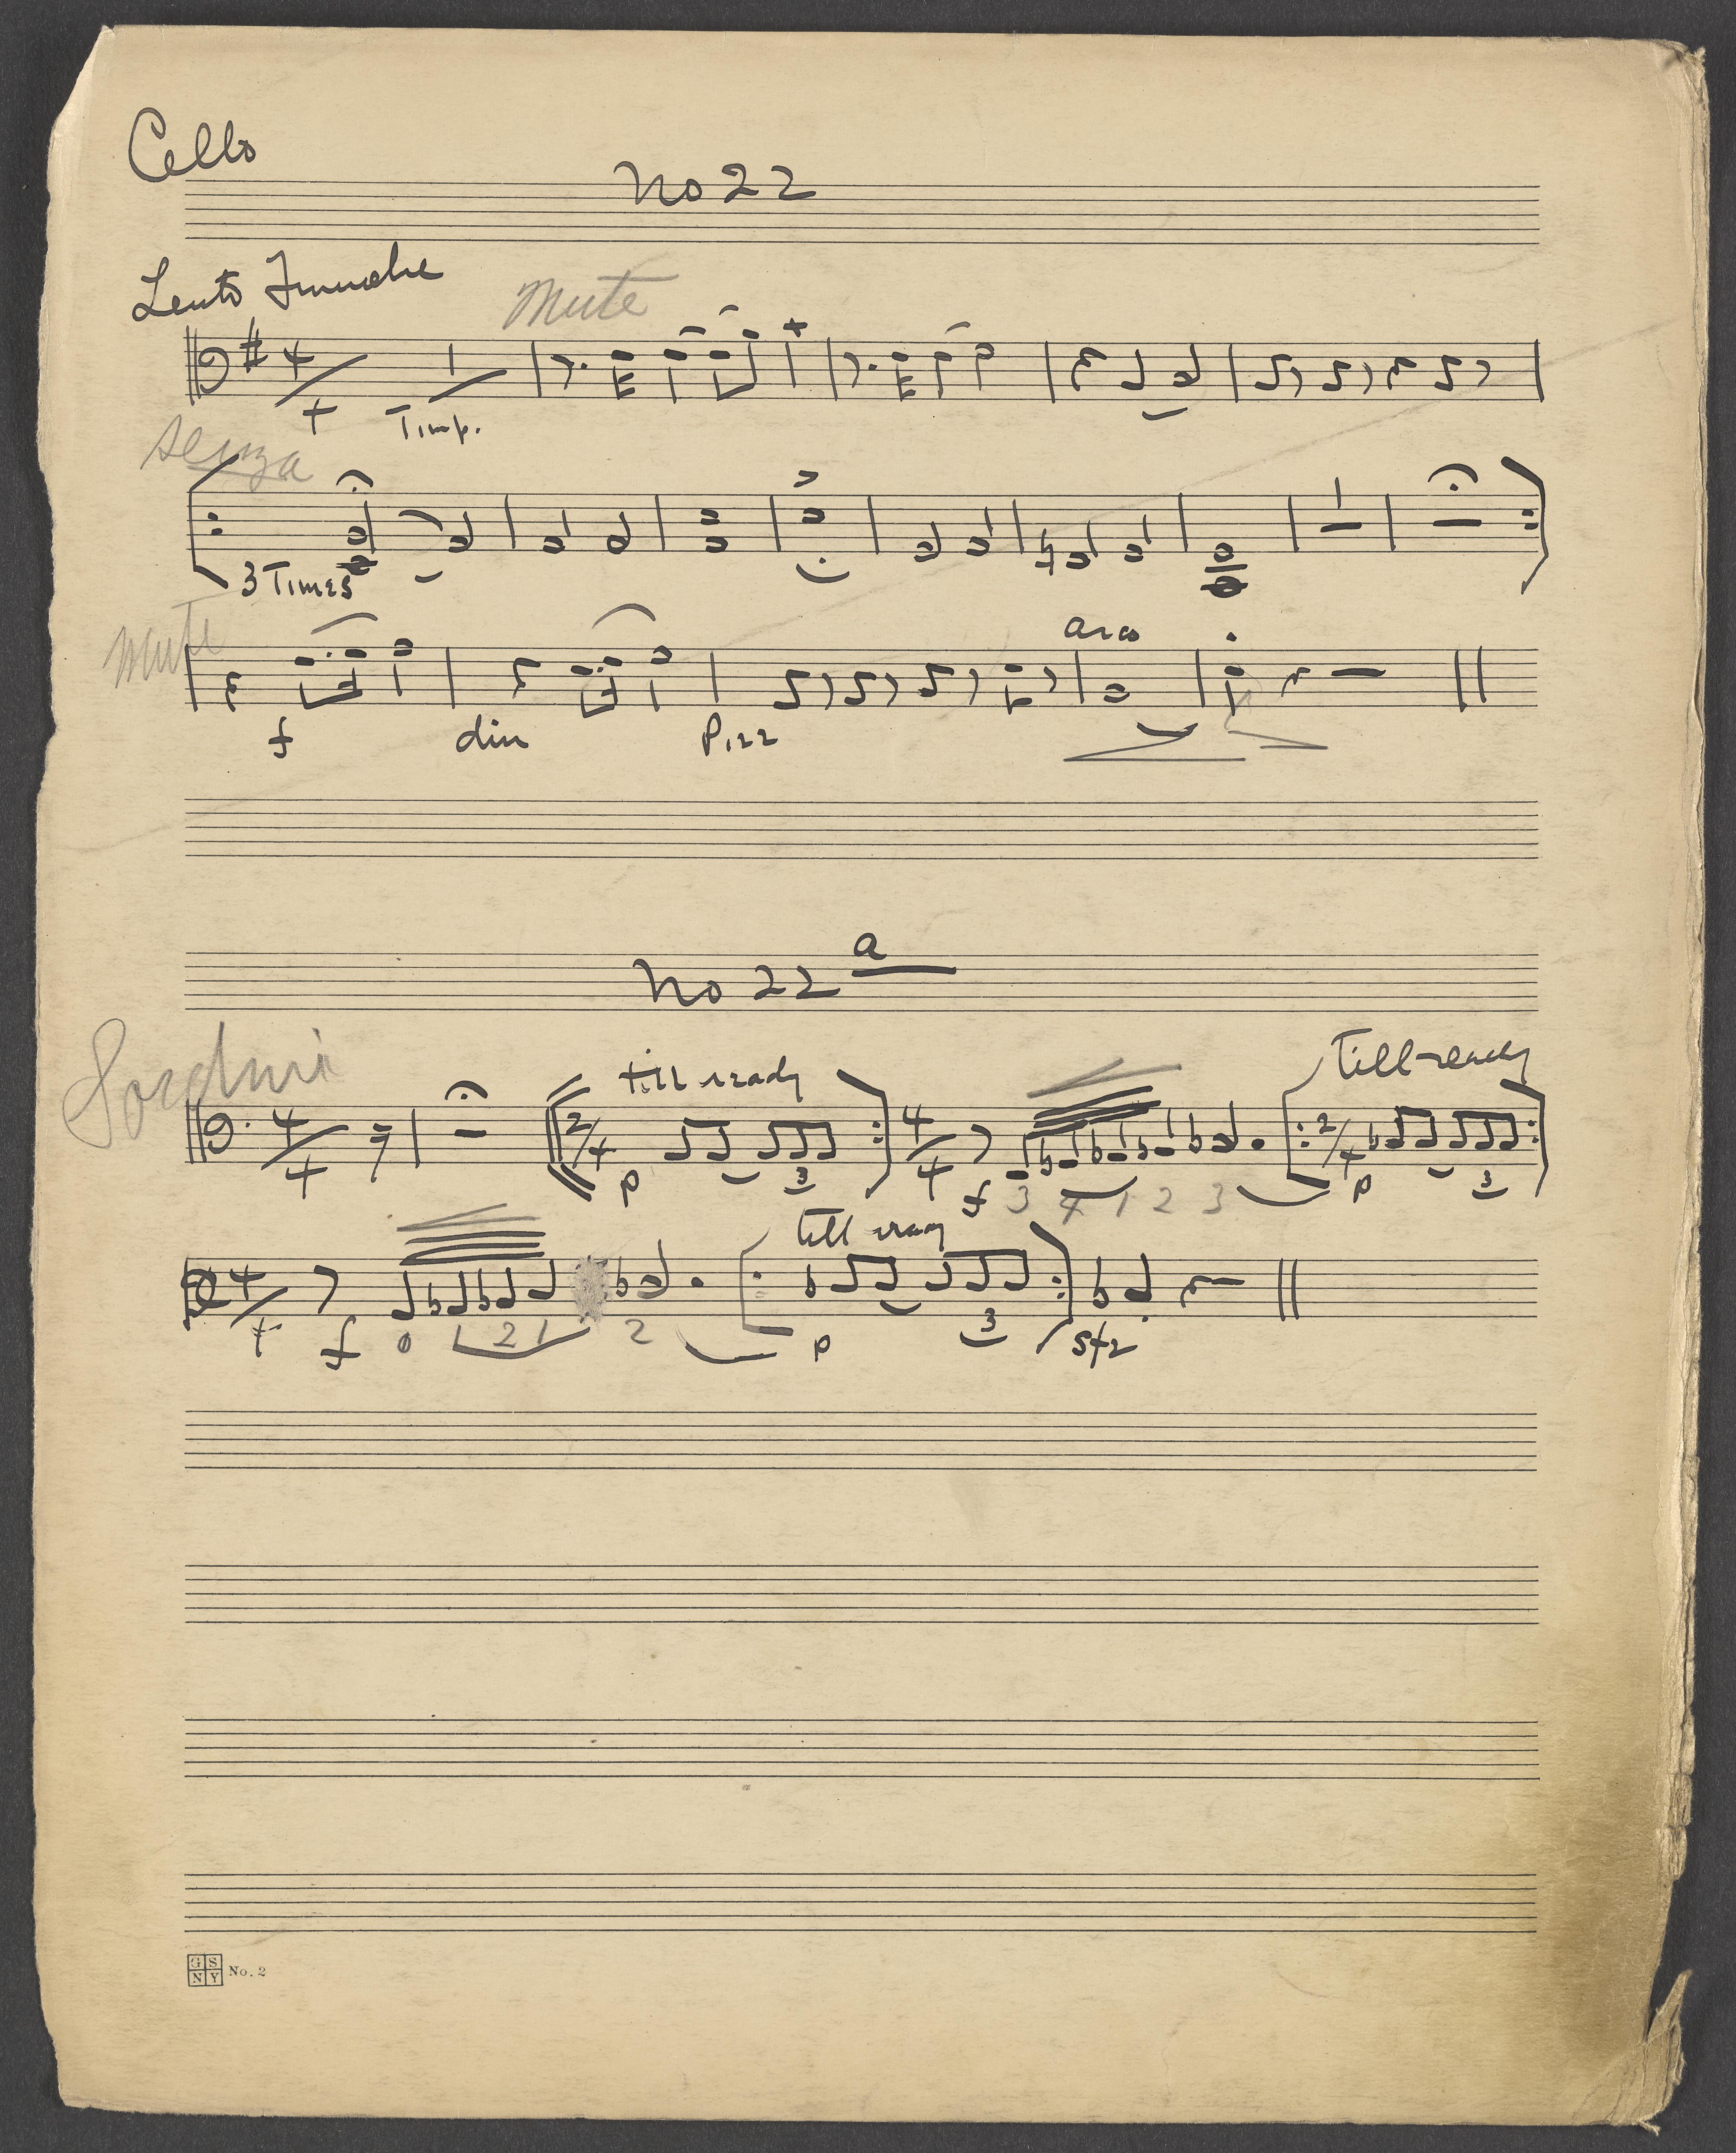 Cello
No 22
Lento Funebre
Mute
4 4 1
Timp.
senza
3 Times
Mute
arco
f dim Pizz
No 22 a
Sordini
till ready till ready
4 4 2 4 4 4 2 4
p 3 f 3 4 1 2 3 p 3
till ready
4 4
f 0 1 2 1 2 p 3 sfz
GS
NY No. 2